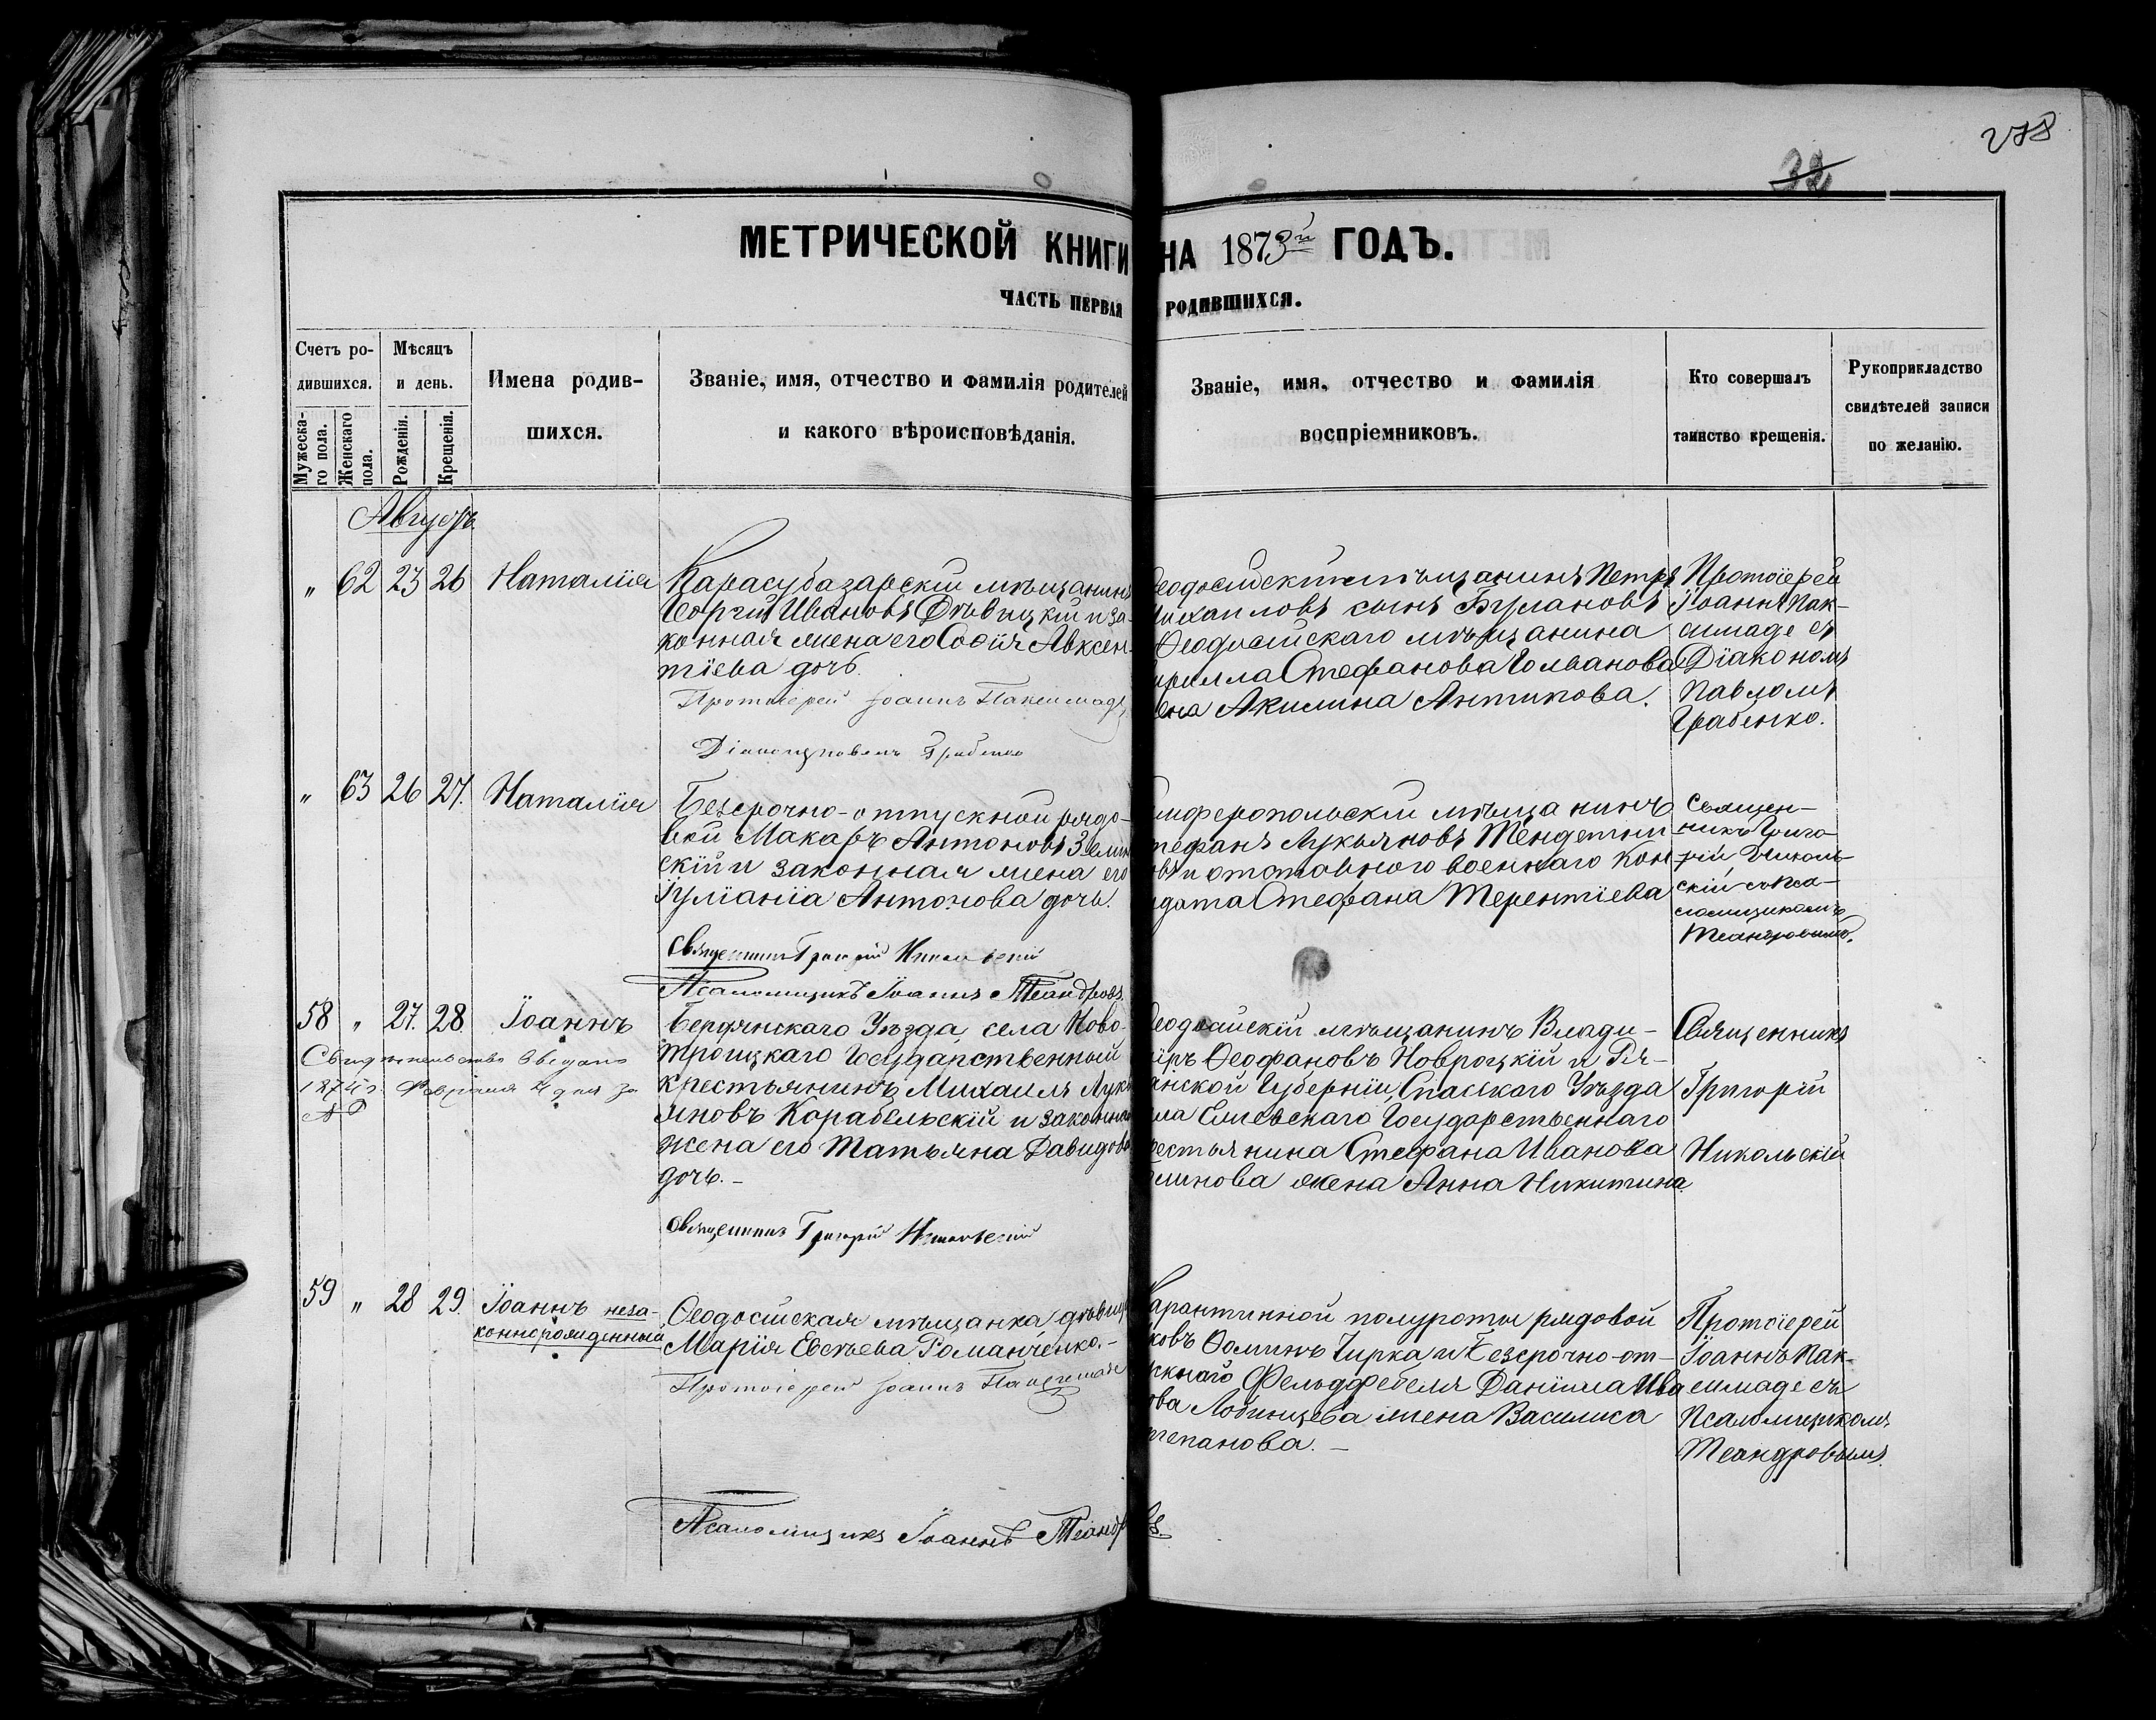 288
32
МЕТРИЧЕСКОЙ КНИГИ НА 1873й ГОДЪ.
ЧАСТЬ ПЕРВАЯ РОДИВШИХСЯ.
Счетъ ро-
дившихся.
Мужеска-
го пола.
Женскаго
пола.
Мѣсяцъ
и день.
Рожденія.
Крещенія.
Имена родив-
шихся.
Званіе, имя, отчество и фамилія родителей
и какого вѣроисповѣданія.
Званіе, имя, отчество и фамилія
воспріемниковъ.
Кто совершалъ
таинство крещенія.
Рукоприкладство
свидѣтелей записи
по желанію.
Августъ
" 62 23 26 Наталія
Карасубазарскій мѣщанинъ
Георгій Ивановъ и за-
конная жена его Софія Авксен-
тіева дочь.
Протоіерей Іоаннъ Паксимаде
Діаконъ Павелъ Грабенко
еодосійскій мѣщанинъ Петръ
ихаиловъ сынъ Булановъ
Ѳеодосійскаго мѣщанина
ирилла Стефанова
ена Акилина Антипова.
Протоіерей
Іоаннъ Пак-
симаде съ
Діакономъ
Павломъ
Грабенко.
" 63 26 27. Наталія
Безсрочно-отпускной рядо-
вой Макаръ Антоновъ
скій и законная жена его
Іуліанія Антонова дочь.
Священникъ Григорій Никольскій
Псаломщикъ Іоаннъ Теандровъ.
имферопольскій мѣщанинъ
тефанъ Лукьяновъ
овъ и отставного военнаго кон
дата Стефана Терентіева
Священ-
никъ Григо-
рій Николь-
скій съ Пса-
ломщикомъ
Теандровымъ.
58 " 27. 28. Іоаннъ
Свидѣтельство выдано
1874 г. Февраля 4 дня за
№
Бердянскаго Уѣзда, села Ново-
троицкаго Государственный
крестьянинъ Михаилъ Лукь
яновъ Корабельскій и законная
жена его Татьяна Давидова
дочь.-
Священникъ Григорій Никольскій
еодосійскій мѣщанинъ Влади-
иръ Ѳеофановъ Новроцкій и Ря-
анской Губерніи, Спаскаго Уѣзда
ла Государственнаго
рестьянина Стефана Иванова
линова жена Анна Никитина.
Священникъ
Григорій
Никольскій
59 " 28 29. Іоаннъ неза-
коннорожденный
Ѳеодосійская мѣщанка, дѣвица
Марія Евсѣева Романченко.-
Протоіерей Іоаннъ Паксимаде
Псаломщикъ Іоаннъ Теандровъ.
Карантинной полуроты рядовой
ковъ Ѳоминъ Чирка, и Безсрочно-от-
скнаго Фельдфебеля Даніила Ива
ова Лобинцева жена Василиса
тепанова.-
Протоіерей
Іоаннъ Пак-
симаде съ
Псаломщикомъ
Теандровымъ.